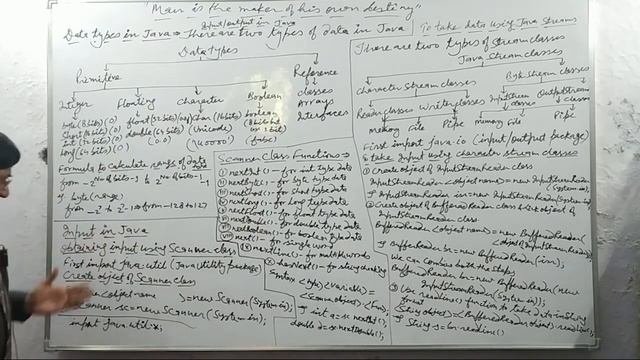 "Man is the maker of his own destiny"
Input/output in Java
Data types in Java → There are two types of data in Java
Data types
Primitive
Reference
classes
Arrays
Interfaces
Integer
Floating
Character
Boolean
byte (8 bits) (0)
short (16 bits) (0)
int (32 bits) (0)
long (64 bits) (0)
float (32 bits)
double (64 bits)
(0.0)
char (16 bits)
(Unicode)
boolean
(false)
Formula to calculate range of data
-2^No of bits-1 to 2^No of bits-1 -1
byte (range)
from -128 to 127
Input in Java
Obtaining input using Scanner class
First import java.util (Java utility package)
Create object of Scanner class
Scanner <object name> = new Scanner (System.in);
Scanner sc = new Scanner (System.in);
import java.util.*;
Scanner Class Functions →
nextInt () - for int type data
nextByte () - for byte type data
nextLong () - for long type data
nextFloat () - for float type data
for double type data
nextBoolean () - for boolean type data
next () - for single word
nextLine () - for multiple words
Syntax <type> <variable> =
<Scanner object>.<fun>
int a = sc.nextInt();
double d = sc.nextDouble();
To take data using Java Streams
There are two types of stream classes
Java Stream classes
Character Stream classes
Byte Stream classes
Reader classes
Writer classes
Input Stream classes
Output Stream classes
Memory File Pipe Memory File Pipe
First import java.io (input/output package)
To take Input using character stream classes
① Create object of InputStreamReader class
InputStreamReader <object name> = new InputStreamReader (System.in);
② Create object of BufferedReader class
InputStreamReader class
BufferedReader <object name> = new BufferedReader (<object of InputStreamReader>);
BufferedReader br = new BufferedReader (isr);
We can combine both the steps
BufferedReader br = new BufferedReader (new
InputStreamReader (System.in));
③ Use readLine() function to take data in string
<String object> = <BufferedReader object>.readLine();
String s = br.readLine()